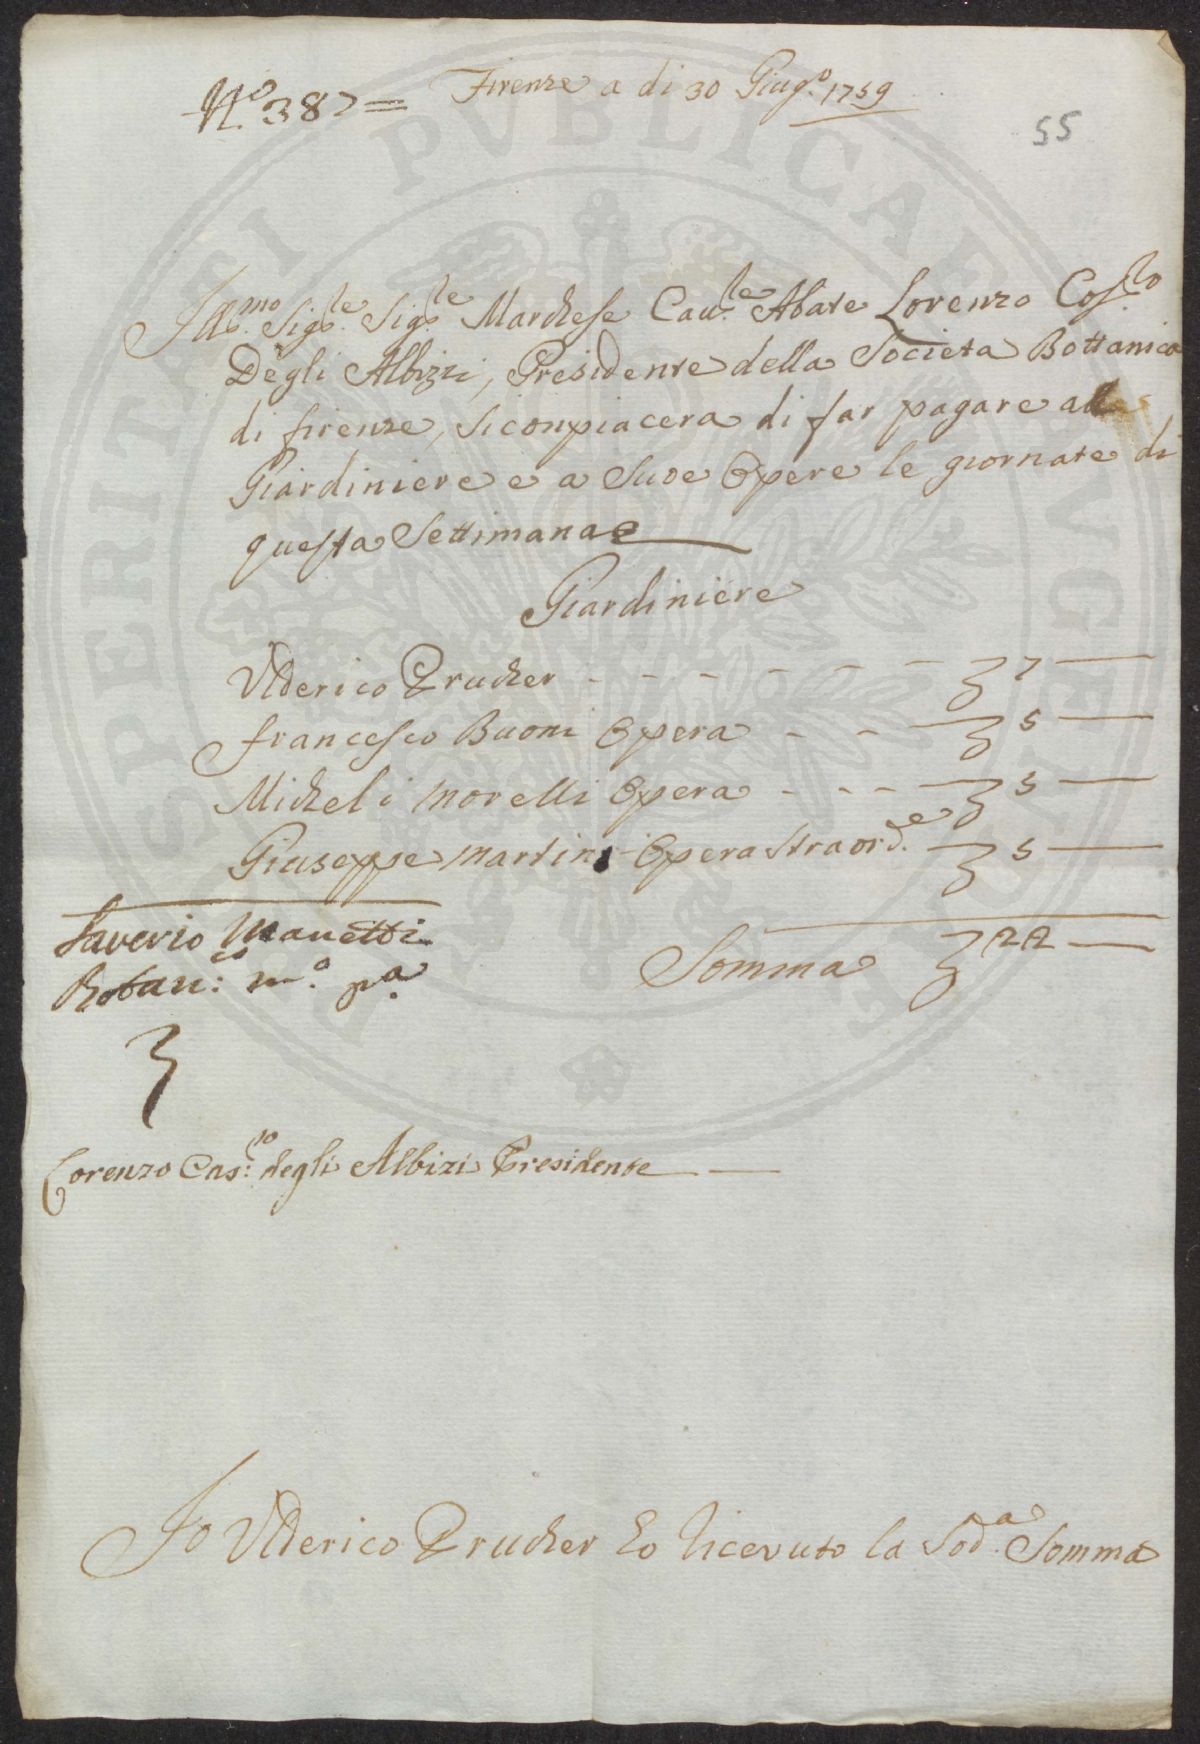 Firenze a di 30 Giug.o 1759
No. 387=
55
Ill.mo Sig.re Sig.re Marchese Cau.re Abate Lorenzo Cos.to
Degli Albizzi, Presidente della Societa Bottanica
di firenze, si conpiacera di far pagare al
Giardiniere e a Sue Opere le giornate di
questa Settimana
Giardiniere
Vlderico Prucher - - - - - - 7 —
francesco Buoni Opera - - 5 —
Micheli Morelli Opera - - - 5 —
Giuseppe Martini Opera straord.e 5 —
Saverio Manetti
Botan.co m.o p.a
Somma 22 —
Lorenzo Cos.to degli Albizi Presidente —
Io Vlderico Prucher ho riceuuto la Sod.a Somma
PROSPERITATI PVBLICAE AVGENDAE